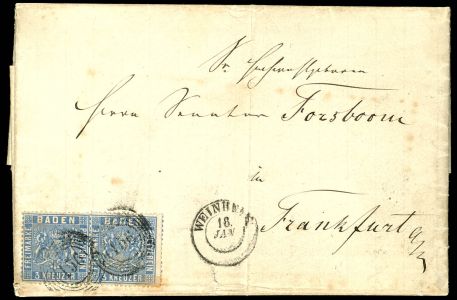 Sr Hochwohlgeboren
Herrn Senator Forsboom
in
Frankfurt a/M
WEINHEIM
18
JAN
BADEN BADEN
FREIMARKE
3 KREUZER 3 KREUZER